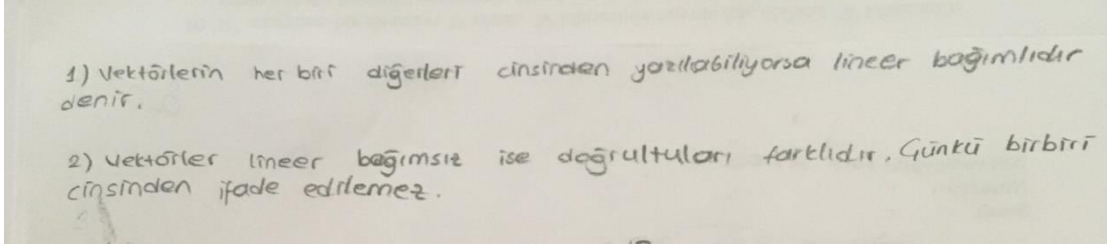 1) Vektörlerin her biri diğerleri cinsinden yazılabiliyorsa lineer bağımlıdır
denir.
2) Vektörler lineer bağımsız ise doğrultuları farklıdır. Çünkü birbiri
cinsinden ifade edilemez.